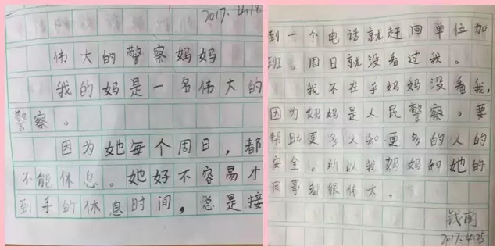 2017.4.25
伟大的警察妈妈
我的妈是一名伟大的
警察。
因为她每个周日,都
不能休息。她好不容易才
到手的休息时间,总是接
到一个电话就赶回单位加
班,周日就没看过我。
我不在乎妈妈没看我,
因为妈妈是人民警察。要
帮助更多人和更多的人的
安全。所以我妈妈的她的
同事都很伟大。
钱雨
2017.4.25